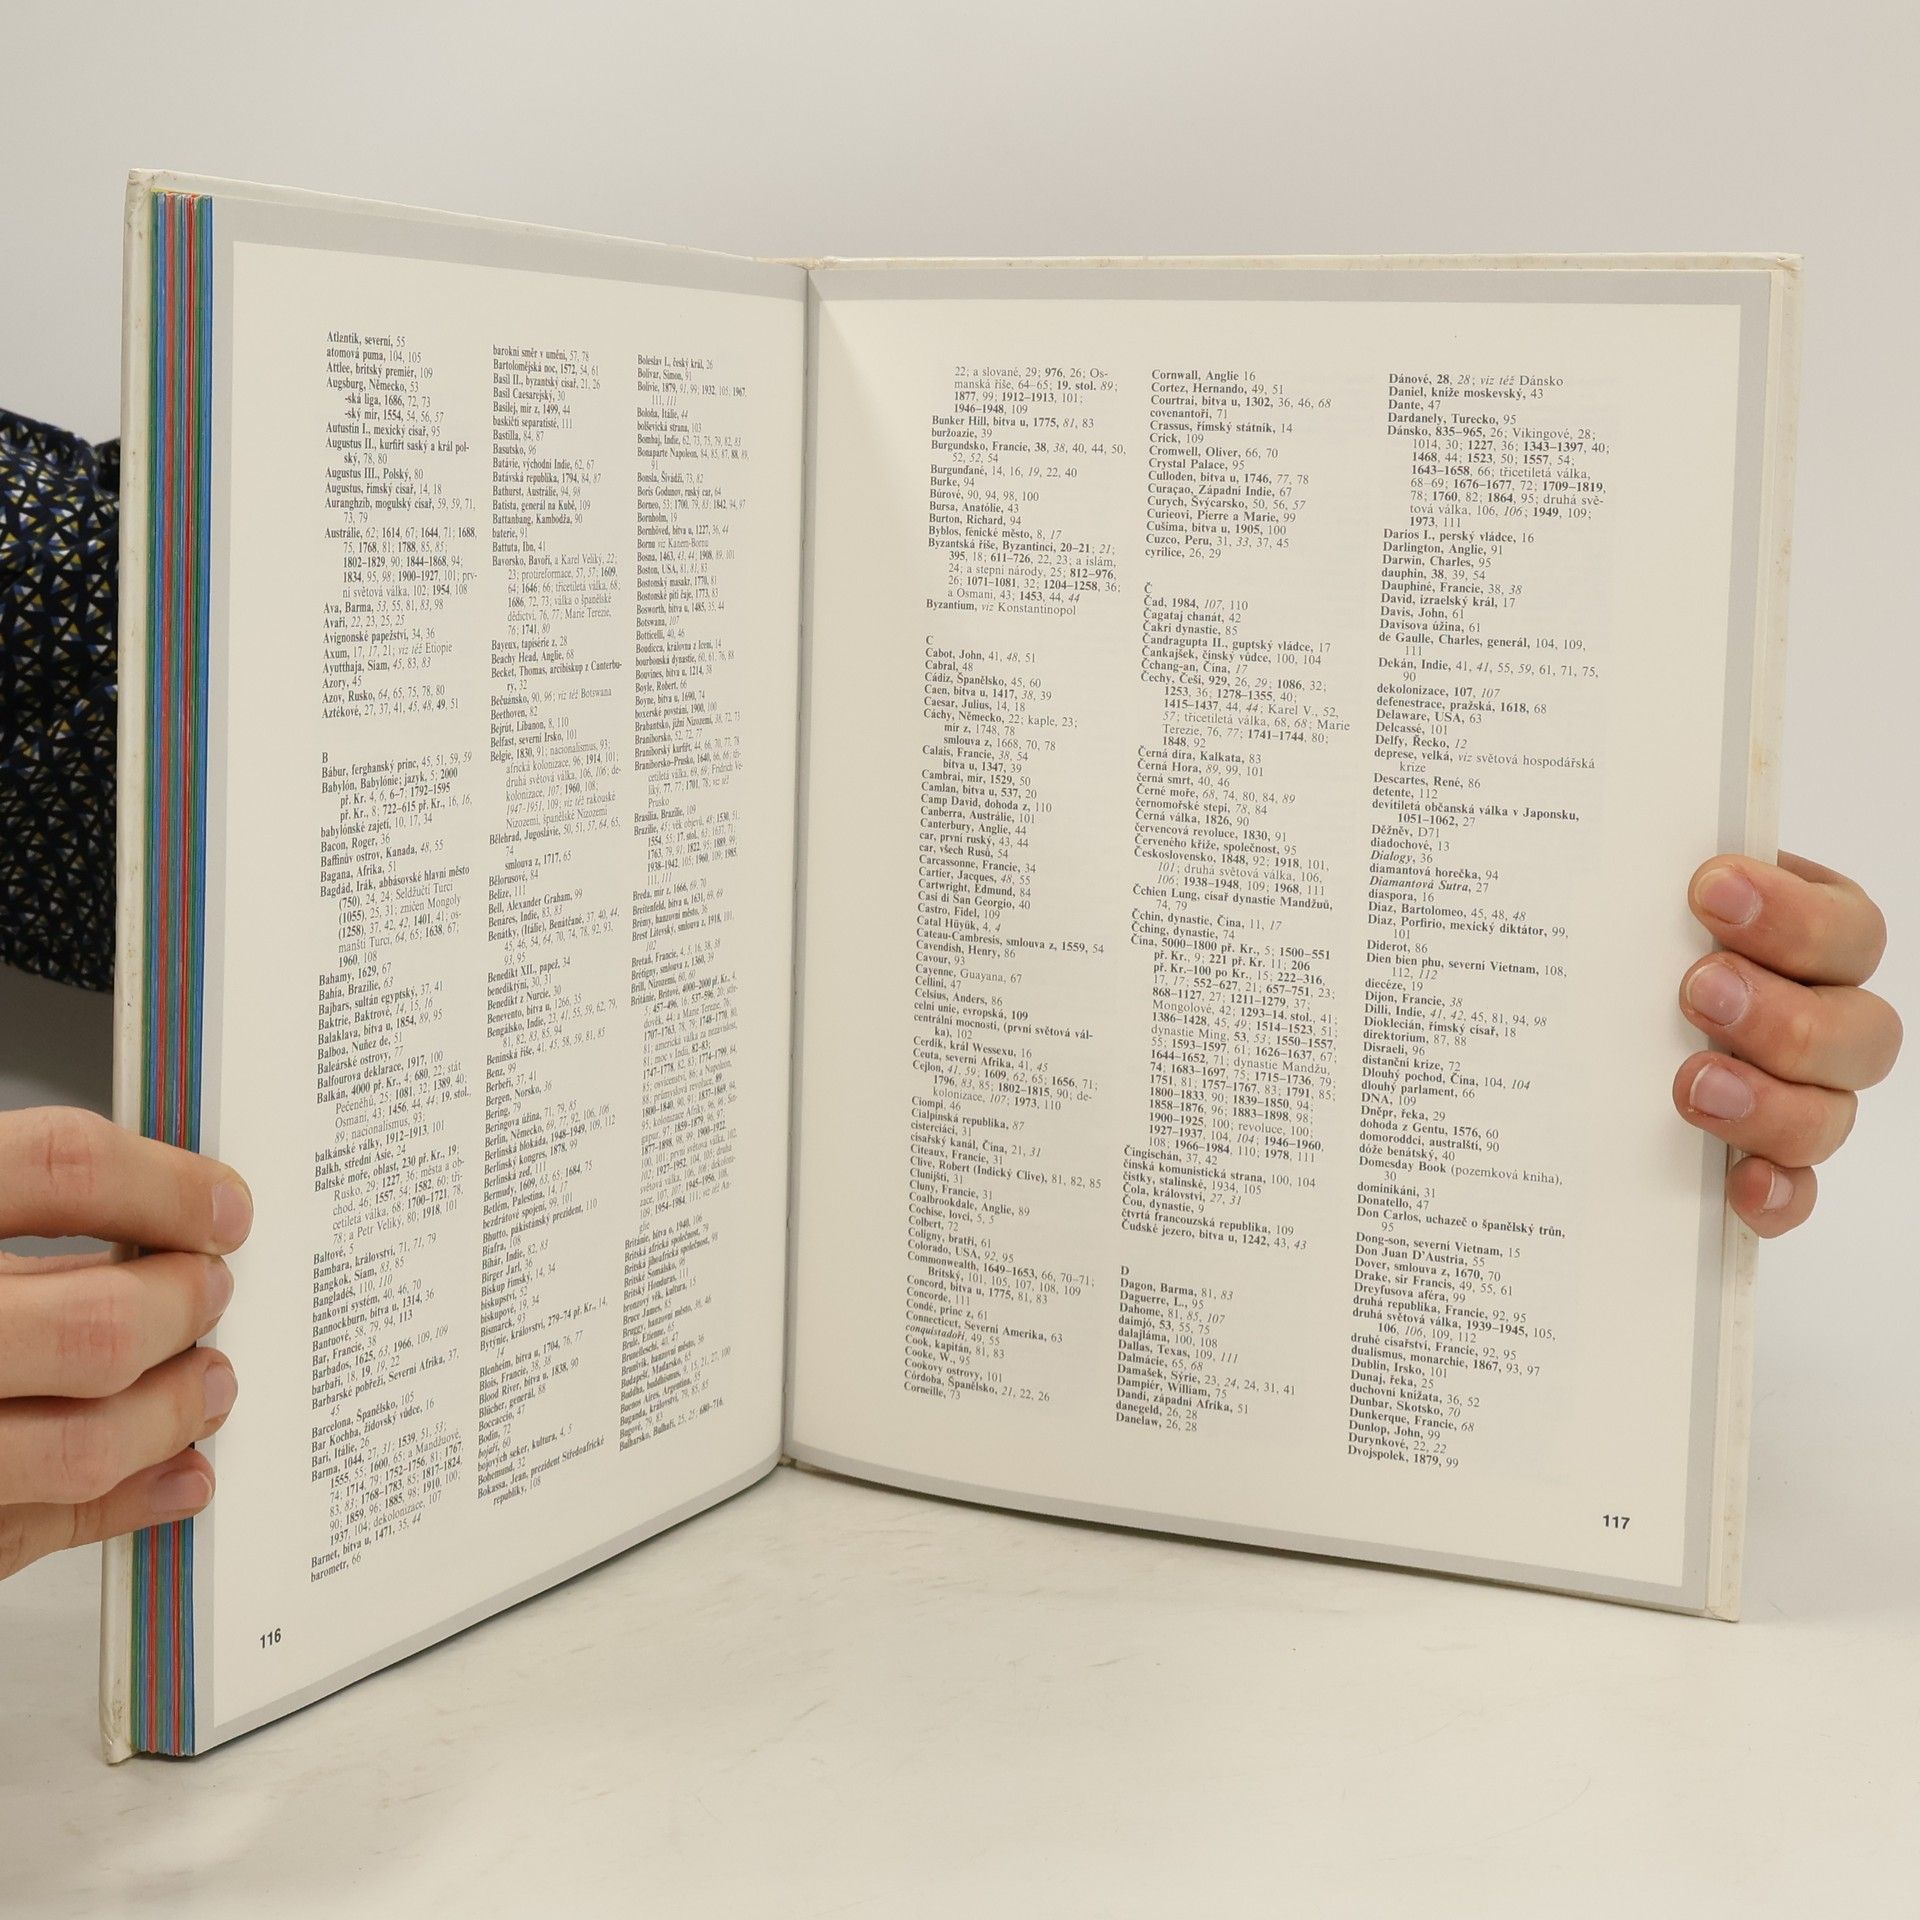 Atlantik, severní, 55
atomová puma, 104, 105
Attlee, britský premiér, 109
Augsburg, Německo, 53
-ská liga, 1686, 72, 73
-ský mír, 1554, 54, 56, 57
Autustin I., mexický císař, 95
Augustus II., kurfiřt saský a král pol-
ský, 78, 80
Augustus III., Polský, 80
Augustus, římský císař, 14, 18
Auranghzíb, mogulský císař, 59, 59, 71,
73, 79
Austrálie, 62; 1614, 67; 1644, 71; 1688,
75, 1768, 81; 1788, 85, 85;
1802–1829, 90; 1844–1868, 94;
1834, 95, 98; 1900–1927, 101; prv-
ní světová válka, 102; 1954, 108
Ava, Barma, 53, 55, 81, 83, 98
Avaři, 22, 23, 25, 25
Avignonské papežství, 34, 36
Axum, 17, 17, 21; viz též Etiopie
Ayutthaja, Siam, 45, 83, 83
Azory, 45
Azov, Rusko, 64, 65, 75, 78, 80
Aztékové, 27, 37, 41, 45, 48, 49, 51
B
Bábur, ferghanský princ, 45, 51, 59, 59
Babylón, Babylónie; jazyk, 5; 2000
př. Kr. 4, 6, 6–7; 1792–1595
př. Kr., 8; 722–615 př. Kr., 16, 16,
babylónské zajetí, 10, 17, 34
Bacon, Roger, 36
Baffinův ostrov, Kanada, 48, 55
Bagana, Afrika, 51
Bagdád, Irák, abbásovské hlavní město
(750), 24, 24; Seldžučtí Turci
(1055), 25, 31; zničen Mongoly
(1258), 37, 42, 42, 1401, 41; os-
manští Turci, 64, 65; 1638, 67;
1960, 108
Bahamy, 1629, 67
Bahia, Brazílie, 63
Bajbars, sultán egyptský, 37, 41
Baktrie, Baktrové, 14, 15, 16
Balaklava, bitva u, 1854, 89, 95
Balboa, Nuñez de, 51
Baleárské ostrovy, 77
Balfourova deklarace, 1917, 100
Balkán, 4000 př. Kr., 4; 680, 22; stát
Pečeněhů, 25; 1081, 32; 1389, 40;
Osmani, 43; 1456, 44, 44; 19. stol.,
89; nacionálismus, 93;
balkánské války, 1912–1913, 101
Balkh, střední Asie, 24
Baltské moře, oblast, 230 př. Kr., 19;
Rusko, 29; 1227, 36; města a ob-
chod, 46; 1557, 54; 1582, 60; tři-
cetiletá válka, 68; 1700–1721, 78,
78; a Petr Veliký, 80; 1918, 101
Baltové, 5
Bambara, království, 71, 71, 79
Bangkok, Siam, 83, 85
Bangladéš, 110, 110
bankovní systém, 40, 46, 70
Bannockburn, bitva u, 1314, 36
Bantuové, 58, 79, 94, 113
Bar, Francie, 38
Barbados, 1625, 63, 1966, 109, 109
barbaři, 18, 19, 19, 22
Barbarské pobřeží, Severní Afrika, 37,
45
Barcelona, Španělsko, 105
Bar Kochba, židovský vůdce, 16
Bari, Itálie, 26
Barma, 1044, 27, 31; 1539, 51, 53;
1555, 55; 1600, 65; a Mandžuové,
74; 1714, 79; 1752–1756, 81; 1767,
83, 83; 1768–1783, 85; 1817–1824,
90; 1859, 96; 1885, 98; 1910, 100;
1937, 104; dekolonizace, 107
Barnet, bitva u, 1471, 35, 44
barometr, 66
116
barokní směr v umění, 57, 78
Bartolomějská noc, 1572, 54, 61
Basil II., byzantský císař, 21, 26
Basil Caesarejský, 30
Basilej, mír z, 1499, 44
baskičtí separatisté, 111
Bastilla, 84, 87
Basutsko, 96
Batávie, východní Indie, 62, 67
Batávská republika, 1794, 84, 87
Bathurst, Austrálie, 94, 98
Batista, generál na Kubě, 109
Battanbang, Kambodža, 90
baterie, 91
Battuta, Ibn, 41
Bavorsko, Bavoři, a Karel Veliký, 22;
23; protireformace, 57, 57; 1609,
64; 1646, 66; třicetiletá válka, 68;
1686, 72, 73; válka o španělské
dědictví, 76, 77; Marie Terezie,
76; 1741, 80
Bayeux, tapisérie z, 28
Beachy Head, Anglie, 68
Becket, Thomas, arcibiskup z Canterbu-
ry, 32
Bečuánsko, 90, 96; viz též Botswana
Beethoven, 82
Bejrút, Libanon, 8, 110
Belfast, severní Irsko, 101
Belgie, 1830, 91; nacionalismus, 93;
africká kolonizace, 96; 1914, 101;
druhá světová válka, 106, 106; de-
kolonizace, 107; 1960, 108;
1947–1951, 109; viz též rakouské
Nizozemí, španělské Nizozemí
Bělehrad, Jugoslávie, 50, 51, 57, 64, 65,
74
smlouva z, 1717, 65
Bělorusové, 84
Belize, 111
Bell, Alexander Graham, 99
Benáres, Indie, 83, 83
Benátky, (Itálie), Benátčané, 37, 40, 44,
45, 46, 54, 64, 70, 74, 78, 92, 93,
93, 95
Benedikt XII., papež, 34
benediktýni, 30, 31
Benedikt z Nurcie, 30
Benevento, bitva u, 1266, 35
Bengálsko, Indie, 23, 41, 55, 59, 62, 79,
81, 82, 83, 85, 94
Beninská říše, 41, 45, 58, 59, 81, 85
Benz, 99
Berbeři, 37, 41
Bergen, Norsko, 36
Bering, 79
Beringova úžina, 71, 79, 85
Berlín, Německo, 69, 77, 92, 106, 106
Berlínská blokáda, 1948–1949, 109, 112
Berlínský kongres, 1878, 99
Berlínská zeď, 111
Bermudy, 1609, 63, 65, 1684, 75
Betlém, Palestina, 14, 17
bezdrátové spojení, 99, 101
Bhutto, pákistánský prezident, 110
Biafra, 108
Bihár, Indie, 82, 83
Birger Jarl, 36
Biskup římský, 14, 34
biskupství, 52
biskupové, 19, 34
Bismarck, 93
Bytýnie, království, 279–74 př. Kr., 14,
14
Blenheim, bitva u, 1704, 76, 77
Blois, Francie, 38, 38
Blood River, bitva u, 1838, 90
Blücher, generál, 88
Boccaccio, 47
Bodin, 72
bojaři, 60
bojových seker, kultura, 4, 5
Bohemund, 32
Bokassa, Jean, prezident Středoafrické
republiky, 108
Boleslav I., český král, 26
Bolívar, Simon, 91
Bolívie, 1879, 91, 99; 1932, 105; 1967,
111, 111
Boloňa, Itálie, 44
bolševická strana, 103
Bombaj, Indie, 62, 73, 75, 79, 82, 83
Bonaparte Napoleon, 84, 85, 87, 88, 89,
91
Bonsla, Šivádží, 73, 82
Boris Godunov, ruský car, 64
Borneo, 53; 1700, 79, 83; 1842, 94, 97
Bornholm, 19
Bornhöved, bitva u, 1227, 36, 44
Bornu viz Kanem-Bornu
Bosna, 1463, 43, 44; 1908, 89, 101
Boston, USA, 81, 81, 83
Bostonský masakr, 1770, 81
Bostonské pití čaje, 1773, 83
Bosworth, bitva u, 1485, 35, 44
Botswana, 107
Botticelli, 40, 46
Boudicca, královna z Iceni, 14
bourbonská dynastie, 60, 61, 76, 88
Bouvines, bitva u, 1214, 38
Boyle, Robert, 66
Boyne, bitva u, 1690, 74
boxerské povstání, 1900, 100
Brabantsko, jižní Nizozemí, 38, 72, 73
Braniborsko, 52, 72, 77
Braniborský kurfiřt, 44, 66, 70, 77, 78
Braniborsko-Prusko, 1640, 66, 66; tři-
cetiletá válka, 69, 69; Fridrich Ve-
liký, 77, 77; 1701, 78; viz též
Prusko
Brasilia, Brazílie, 109
Brazílie, 45; věk objevů, 48; 1530, 51;
1554, 55; 17. stol., 63; 1637, 71;
1763, 79, 91; 1822, 95; 1889, 99;
1938–1942, 105; 1960, 109; 1985,
111, 111
Breda, mír z, 1666, 69, 70
Breitenfeld, bitva u, 1631, 69, 69
Brémy, hanzovní město, 36
Brest Litevský, smlouva z, 1918, 101,
102
Bretaň, Francie, 4, 5, 16, 38, 38
Brétigny, smlouva z, 1360, 39
Brill, Nizozemí, 60, 60
Británie, bitva o, 1940, 106
Britská africká společnost, 79
Britská jihoafrická společnost, 98
Britské Somálsko, 96
Britský Honduras, 111
bronzový věk, kultura, 15
Bruce James, 85
Bruggy, hanzovní město, 38, 46
Brulé, Etienne, 65
Brunelleschi, 40, 47
Brunšvik, hanzovní město, 36
Budapešť, Maďarsko, 65
Buddha, buddhismus, 9, 15, 21, 27, 100
Buenos Aires, Argentina, 55
Buganda, království, 79, 85, 85
Bugové, 79, 83
Bulharsko, Bulhaři, 25, 25; 680–716,
22; a slované, 29; 976, 26; Os-
manská říše, 64–65; 19. stol. 89;
1877, 99; 1912–1913, 101;
1946–1948, 109
Bunker Hill, bitva u, 1775, 81, 83
buržoazie, 39
Burgundsko, Francie, 38, 38, 40, 44, 50,
52, 52, 54
Burgunďané, 14, 16, 19, 22, 40
Burke, 94
Búrové, 90, 94, 98, 100
Bursa, Anatólie, 43
Burton, Richard, 94
Byblos, fénické město, 8, 17
Byzantská říše, Byzantinci, 20–21; 21;
395, 18; 611–726, 22, 23; a islám,
24; a stepní národy, 25; 812–976,
26; 1071–1081, 32; 1204–1258, 36;
a Osmani, 43; 1453, 44, 44
Byzantium, viz Konstantinopol
C
Cabot, John, 41, 48, 51
Cabral, 48
Cádiz, Španělsko, 45, 60
Caen, bitva u, 1417, 38, 39
Caesar, Julius, 14, 18
Cáchy, Německo, 22; kaple, 23;
mír z, 1748, 78
smlouva z, 1668, 70, 78
Calais, Francie, 38, 54
bitva u, 1347, 39
Cambrai, mír, 1529, 50
Camlan, bitva u, 537, 20
Camp David, dohoda z, 110
Canberra, Austrálie, 101
Canterbury, Anglie, 44
car, první ruský, 43, 44
car, všech Rusů, 54
Carcassonne, Francie, 34
Cartier, Jacques, 48, 55
Cartwright, Edmund, 84
Casi di San Georgio, 40
Castro, Fidel, 109
Catal Hüyük, 4, 4
Cateau-Cambresis, smlouva z, 1559, 54
Cavendish, Henry, 86
Cavour, 93
Cayenne, Guayana, 67
Cellini, 47
Celsius, Anders, 86
celní unie, evropská, 109
centrální mocnosti, (první světová vál-
ka), 102
Cerdik, král Wessexu, 16
Ceuta, severní Afrika, 41, 45
Cejlon, 41, 59; 1609, 62, 65; 1656, 71;
1796, 83, 85; 1802–1815, 90; de-
kolonizace, 107; 1973, 110
Ciompi, 46
Cialpinská republika, 87
cisterciáci, 31
císařský kanál, Čína, 21, 31
Citeaux, Francie, 31
Clive, Robert (Indický Clive), 81, 82, 85
Clunijští, 31
Cluny, Francie, 31
Coalbrookdale, Anglie, 89
Cochise, lovci, 5, 5
Colbert, 72
Coligny, bratři, 61
Colorado, USA, 92, 95
Commonwealth, 1649–1653, 66, 70–71;
Britský, 101, 105, 107, 108, 109
Concord, bitva u, 1775, 81, 83
Concorde, 111
Condé, princ z, 61
Connecticut, Severní Amerika, 63
conquistadoři, 49, 55
Cook, kapitán, 81, 83
Cooke, W., 95
Cookovy ostrovy, 101
Córdoba, Španělsko, 21, 22, 26
Corneille, 73
Cornwall, Anglie 16
Cortez, Hernando, 49, 51
Courtrai, bitva u, 1302, 36, 46, 68
covenantoři, 71
Crassus, římský státník, 14
Crick, 109
Cromwell, Oliver, 66, 70
Crystal Palace, 95
Culloden, bitva u, 1746, 77, 78
Curaçao, Západní Indie, 67
Curych, Švýcarsko, 50, 56, 57
Curieovi, Pierre a Marie, 99
Cušima, bitva u, 1905, 100
Cuzco, Peru, 31, 33, 37, 45
cyrilice, 26, 29
Č
Čad, 1984, 107, 110
Čagataj chanát, 42
Čakri dynastie, 85
Čandragupta II., guptský vládce, 17
Čankajšek, čínský vůdce, 100, 104
Čchang-an, Čína, 17
Čechy, Češi, 929, 26, 29; 1086, 32;
1253, 36; 1278–1355, 40;
1415–1437, 44, 44; Karel V., 52,
57; třicetiletá válka, 68, 68; Marie
Terezie, 76, 77; 1741–1744, 80;
1848, 92
Černá díra, Kalkata, 83
Černá Hora, 89, 99, 101
černá smrt, 40, 46
Černé moře, 68, 74, 80, 84, 89
černomořské stepi, 78, 84
Černá válka, 1826, 90
červencová revoluce, 1830, 91
Červeného kříže, společnost, 95
Československo, 1848, 92; 1918, 101,
101; druhá světová válka, 106,
106; 1938–1948, 109; 1968, 111
Čchien Lung, císař dynastie Mandžuů,
74, 79
Čchin, dynastie, Čína, 11, 17
Čching, dynastie, 74
Čína, 5000–1800 př. Kr., 5; 1500–551
př. Kr., 9; 221 př. Kr. 11; 206
př. Kr.–100 po Kr., 15; 222–316,
17, 17; 552–627, 21; 657–751, 23;
868–1127, 27; 1211–1279, 37;
Mongolové, 42; 1293–14. stol., 41;
1386–1428, 45, 49; 1514–1523, 51;
dynastie Ming, 53, 53; 1550–1557,
55; 1593–1597, 61; 1626–1637, 67;
1644–1652, 71; dynastie Mandžu,
74; 1683–1697, 75; 1715–1736, 79;
1751, 81; 1757–1767, 83; 1791, 85;
1800–1833, 90; 1839–1850, 94;
1858–1876, 96; 1883–1898, 98;
1900–1925, 100; revoluce, 100;
1927–1937, 104, 104; 1946–1960,
108; 1966–1984, 110; 1978, 111
Čingischán, 37, 42
čínská komunistická strana, 100, 104
čistky, stalinské, 1934, 105
Čola, království, 27, 31
Čou, dynastie, 9
čtvrtá francouzská republika, 109
Čudské jezero, bitva u, 1242, 43, 43
D
Dagon, Barma, 81, 83
Daguerre, L., 95
Dahome, 81, 85, 107
daimjó, 53, 55, 75
dalajláma, 100, 108
Dallas, Texas, 109, 111
Dalmácie, 65, 68
Damašek, Sýrie, 23, 24, 24, 31, 41
Dampiér, William, 75
Dandi, západní Afrika, 51
danegeld, 26, 28
Danelaw, 26, 28
Dánové, 28, 28; viz též Dánsko
Daniel, kníže moskevský, 43
Dante, 47
Dardanely, Turecko, 95
Dánsko, 835–965, 26; Vikingové, 28;
1014, 30; 1227, 36; 1343–1397, 40;
1468, 44; 1523, 50; 1557, 54;
1643–1658, 66; třicetiletá válka,
68–69; 1676–1677, 72; 1709–1819,
78; 1760, 82; 1864, 95; druhá svě-
tová válka, 106, 106; 1949, 109;
1973, 111
Darios I., perský vládce, 16
Darlington, Anglie, 91
Darwin, Charles, 95
dauphin, 38, 39, 54
Dauphiné, Francie, 38, 38
David, izraelský král, 17
Davis, John, 61
Davisova úžina, 61
de Gaulle, Charles, generál, 104, 109,
111
Dekán, Indie, 41, 41, 55, 59, 61, 71, 75,
90
dekolonizace, 107, 107
defenestrace, pražská, 1618, 68
Delaware, USA, 63
Delcassé, 101
Delfy, Řecko, 12
deprese, velká, viz světová hospodářská
krize
Descartes, René, 86
detente, 112
devítiletá občanská válka v Japonsku,
1051–1062, 27
Děžněv, D71
diadochové, 13
Dialogy, 36
diamantová horečka, 94
Diamantová Sutra, 27
diaspora, 16
Diaz, Bartolomeo, 45, 48, 48
Díaz, Porfirio, mexický diktátor, 99,
101
Diderot, 86
Dien bien phu, severní Vietnam, 108,
112, 112
diecéze, 19
Dijon, Francie, 38
Dillí, Indie, 41, 42, 45, 81, 94, 98
Dioklecián, římský císař, 18
direktorium, 87, 88
Disraeli, 96
distanční krize, 72
Dlouhý pochod, Čína, 104, 104
dlouhý parlament, 66
DNA, 109
Dněpr, řeka, 29
dohoda z Gentu, 1576, 60
domorodci, australští, 90
dóže benátský, 40
Domesday Book (pozemková kniha),
30
dominikáni, 31
Donatello, 47
Don Carlos, uchazeč o španělský trůn,
95
Dong-son, severní Vietnam, 15
Don Juan D'Austria, 55
Dover, smlouva z, 1670, 70
Drake, sir Francis, 49, 55, 61
Dreyfusova aféra, 99
druhá republika, Francie, 92, 95
druhá světová válka, 1939–1945, 105,
106, 106, 109, 112
druhé císařství, Francie, 92, 95
dualismus, monarchie, 1867, 93, 97
Dublin, Irsko, 101
Dunaj, řeka, 25
duchovní knížata, 36, 52
Dunbar, Skotsko, 70
Dunkerque, Francie, 68
Dunlop, John, 99
Durynkové, 22, 22
Dvojspolek, 1879, 99
117